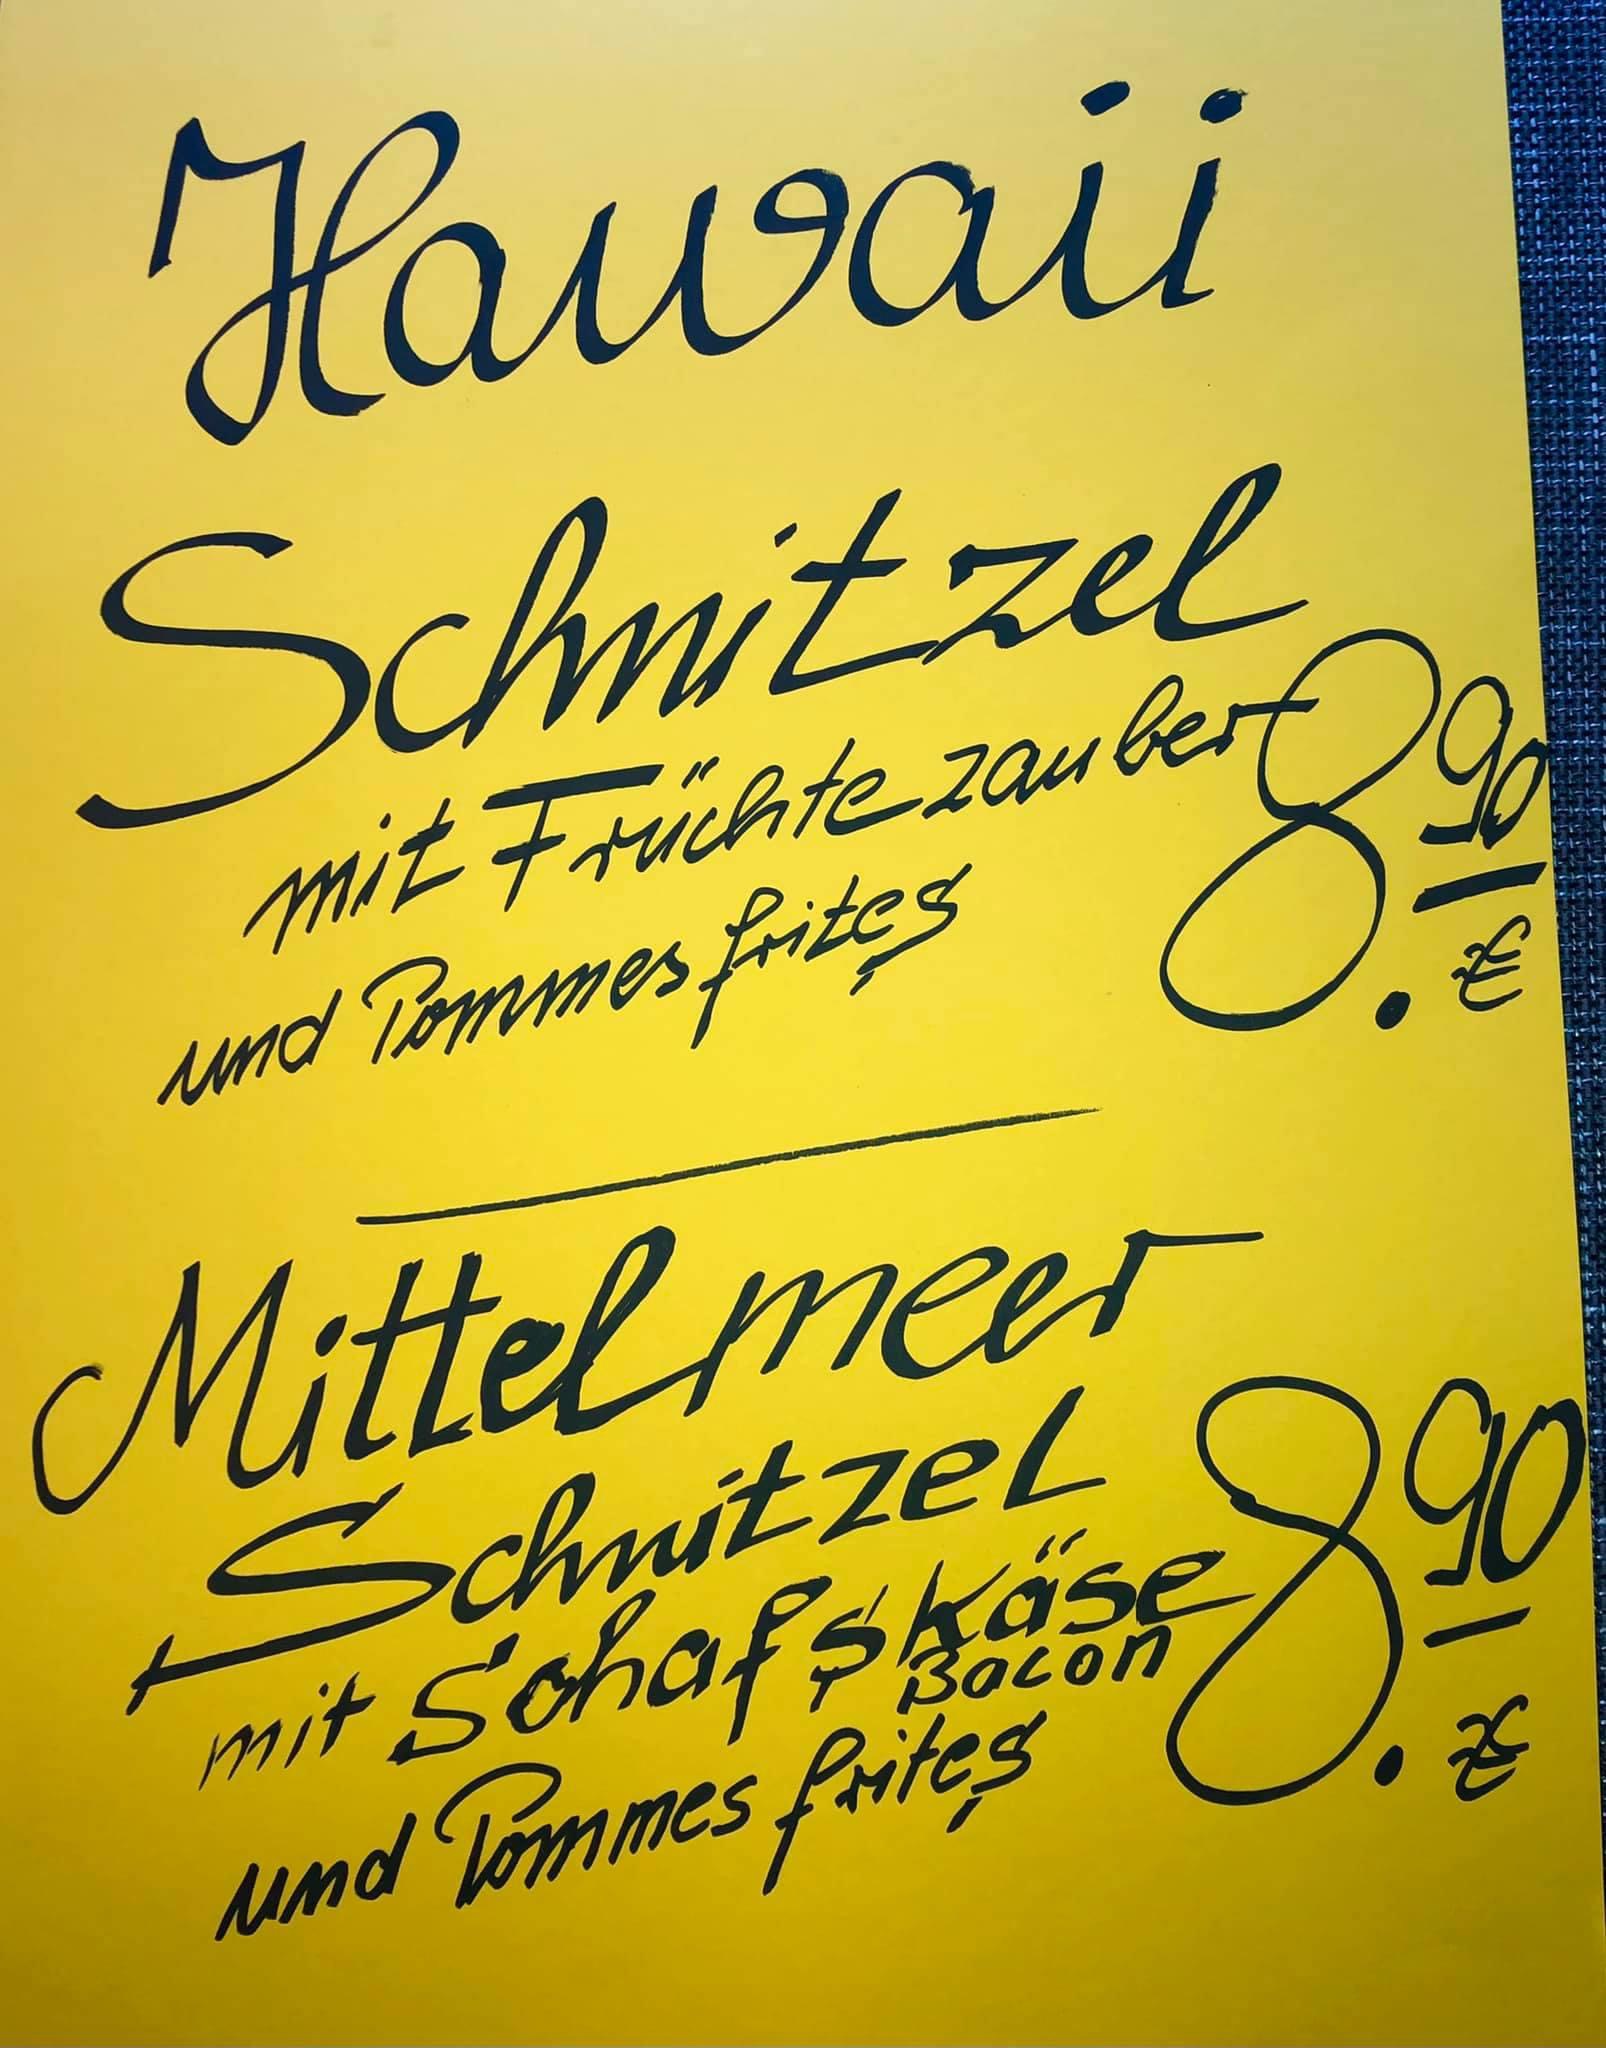 Hawaii
Schnitzel
mit Früchtezauber 8.90
und Pommes frites €
Mittelmeer
Schnitzel 8.90
mit Schafskäse
Bacon
und Pommes frites €